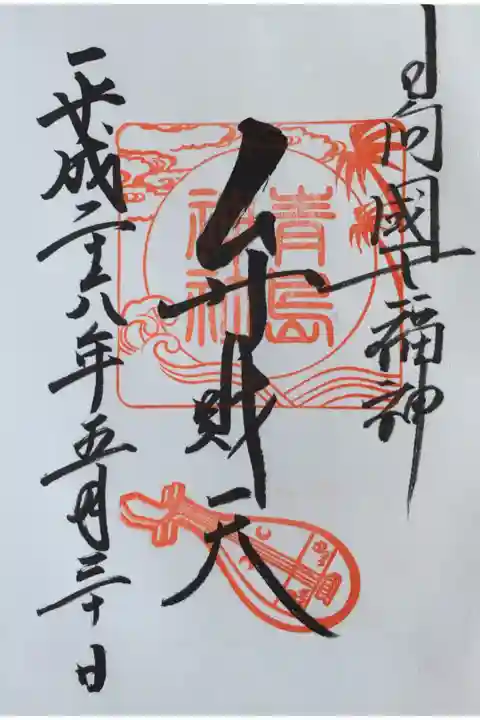 日向國七福神
青島
神社
弁財天
平成二十八年五月三十日